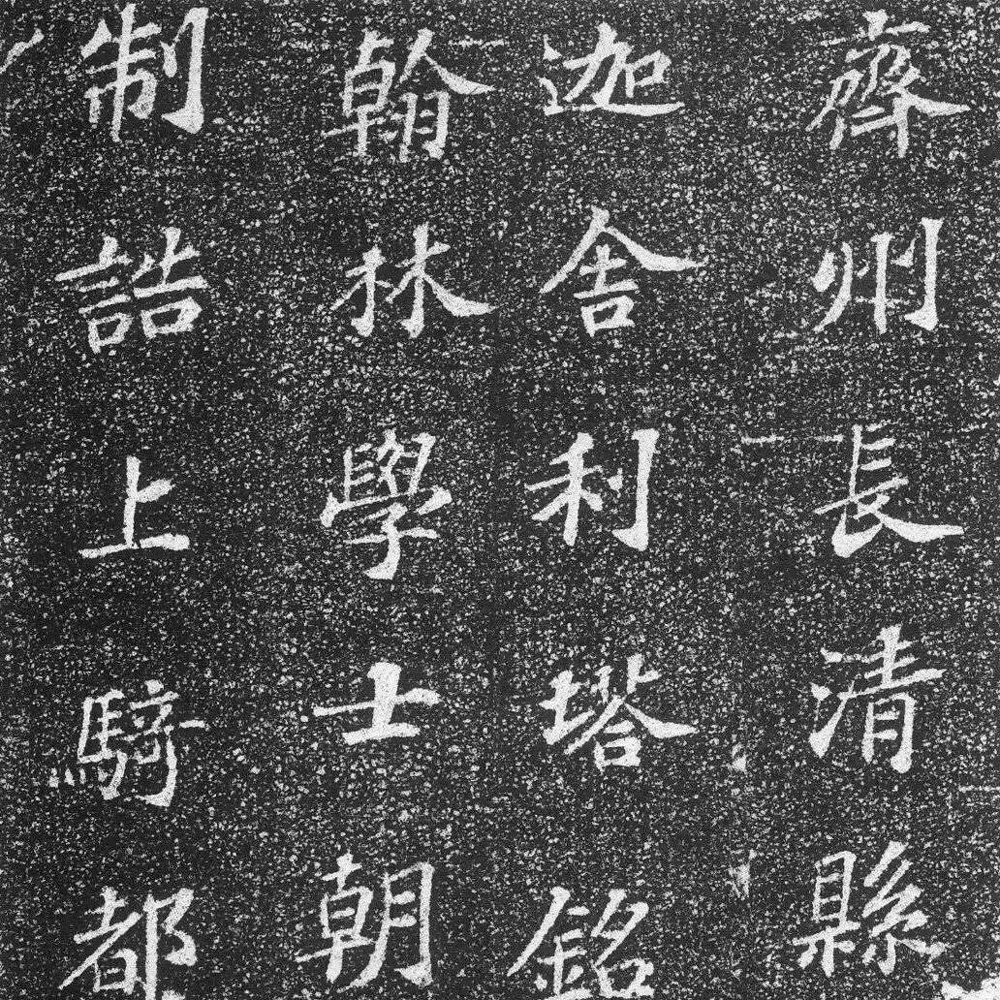 齊州長清縣
迦舍利塔銘
翰林學士朝
制誥上騎都